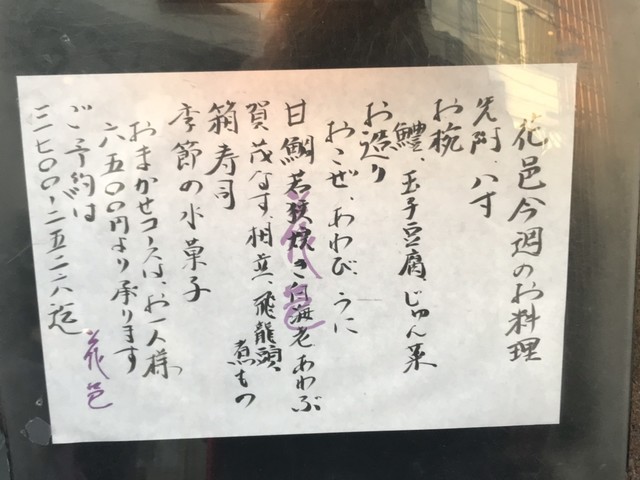 花邑今週のお料理
先附、八寸
お椀
鱧、玉子豆腐、じゅん菜
お造り
おこぜ、あわび、うに
甘鯛若狭焼き白海老あわぶ
賀茂なす、相並、飛龍頭
煮もの
箱寿司
季節の水菓子
おまかせコースは、お一人様
六五〇〇円より承ります
ご予約は
三一七〇〇-二五二二八迄
花邑
花邑